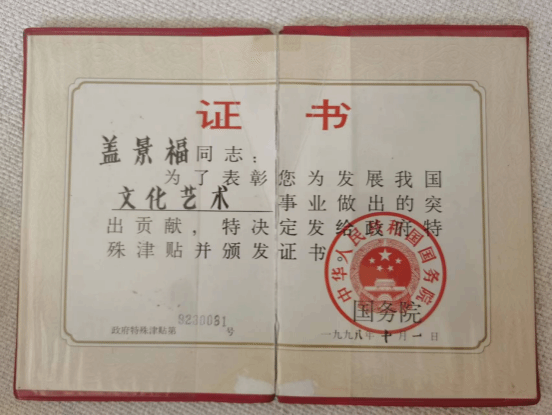 证 书
盖景福同志：
为了表彰您为发展我国
文化艺术 事业做出的突
出贡献，特决定发给政府特
殊津贴并颁发证书。
中华人民共和国国务院
国务院
政府特殊津贴第9230081号
一九九八年十月一日